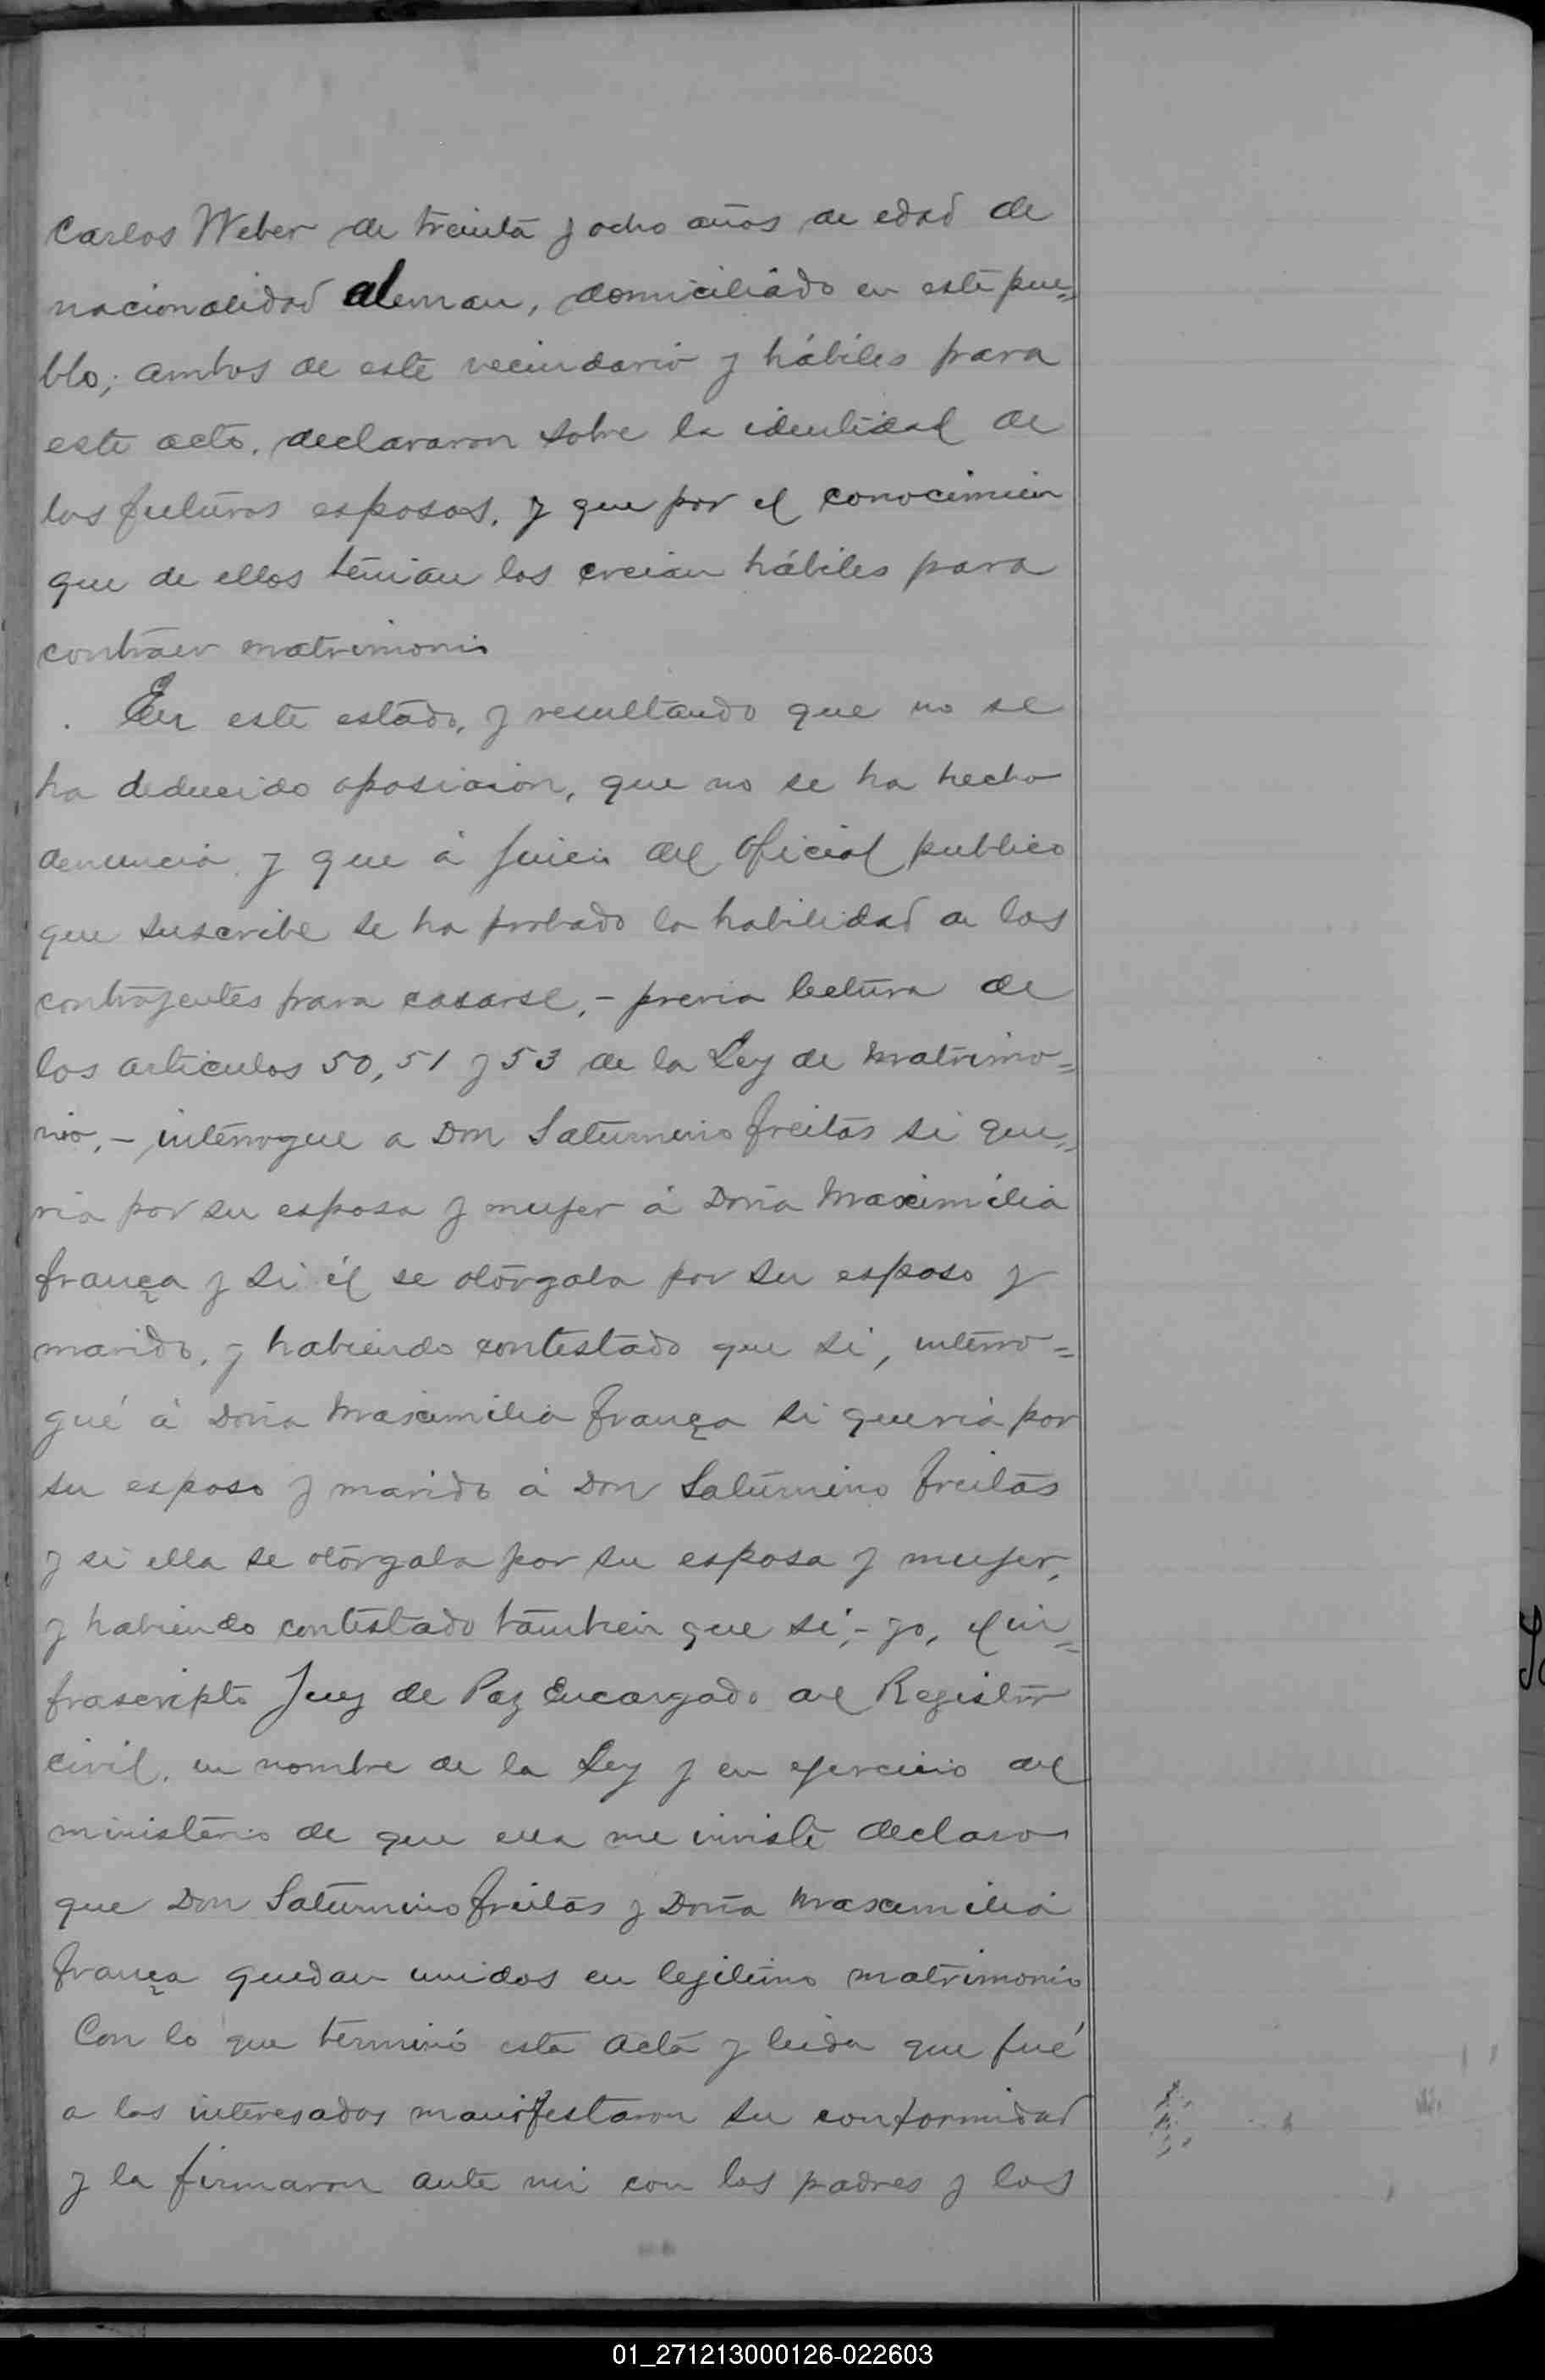 Carlos Weber de treinta y ocho años de edad de
nacionalidad aleman, domiciliado en este pue=
blo; ambos de este vecindario y hábiles para
este acto, declararon sobre la identidad de
los futuros esposos, y que por el conocimien
que de ellos tenian los creian hábiles para
contraer matrimonio
En este estado, y resultando que no se
ha deducido oposicion, que no se ha hecho
denuncia y que á juicio del oficial publico
que suscribe se ha probado la habilidad de los
contrayentes para casarse, - previa lectura de
los articulos 50, 51 y 53 de la Ley de matrimo=
nio, - interrogue a Don Saturnino Freitas si que=
ria por su esposa y mujer á Doña Maximilia
França y si él se otorgaba por su esposo y
marido, y habiendo contestado que si, interro=
gué á Doña Maximilia França si queria por
su esposo y marido á Don Saturnino Freitas
y si ella se otorgaba por su esposa y mujer,
y habiendo contestado tambien que si, - yo, el in=
frascripto Juez de Paz Encargado del Registro
civil, en nombre de la Ley y en ejercicio del
ministerio de que ella me inviste declaro
que Don Saturnino Freitas y Doña Maximilia
França quedan unidos en legitimo matrimonio
Con lo que terminó esta acta y leida que fué
a los interesados manifestaron su conformidad
y la firmaron ante mi con los padres y los
01_271213000126-022603